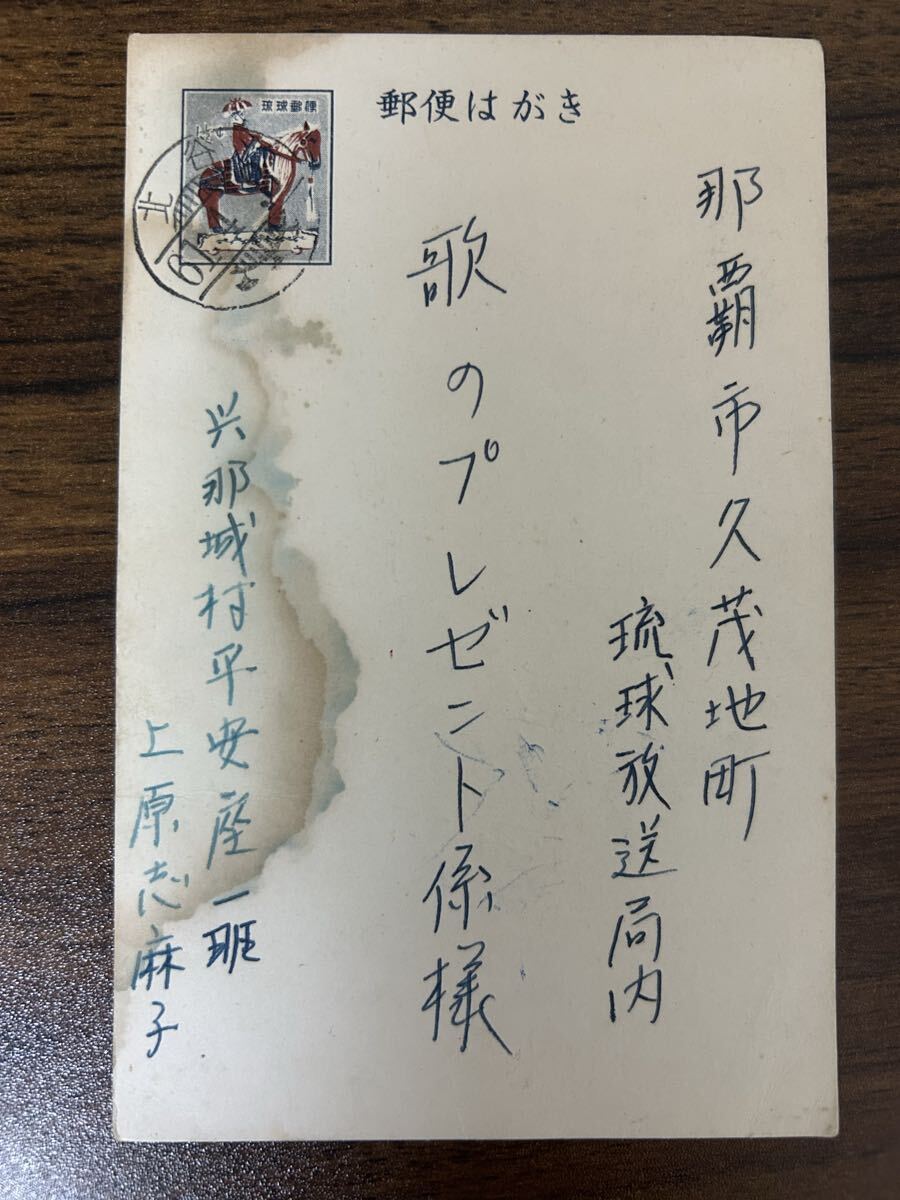 郵便はがき
琉球郵便
北谷
那覇市久茂地町
琉球放送局内
歌のプレゼント係様
兴那城村平安座一班
上原志麻子